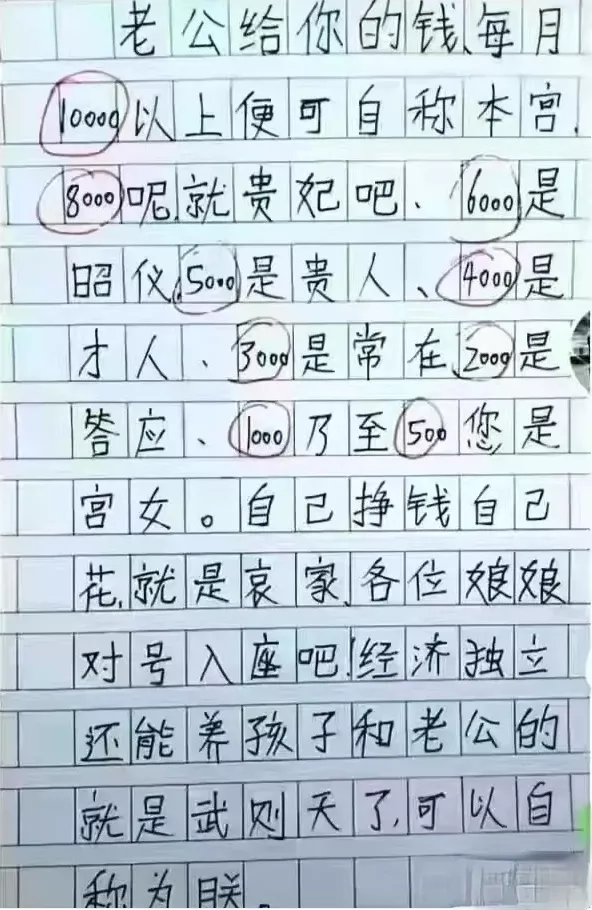 老公给你的钱、每月
10000以上便可自称本宫、
8000呢就贵妃吧、6000是
昭仪、5000是贵人、4000是
才人、3000是常在、2000是
答应、1000乃至500您是
宫女。自己挣钱自己
花、就是哀家、各位娘娘
对号入座吧!经济独立
还能养孩子和老公的
就是武则天了,可以自
称为朕。